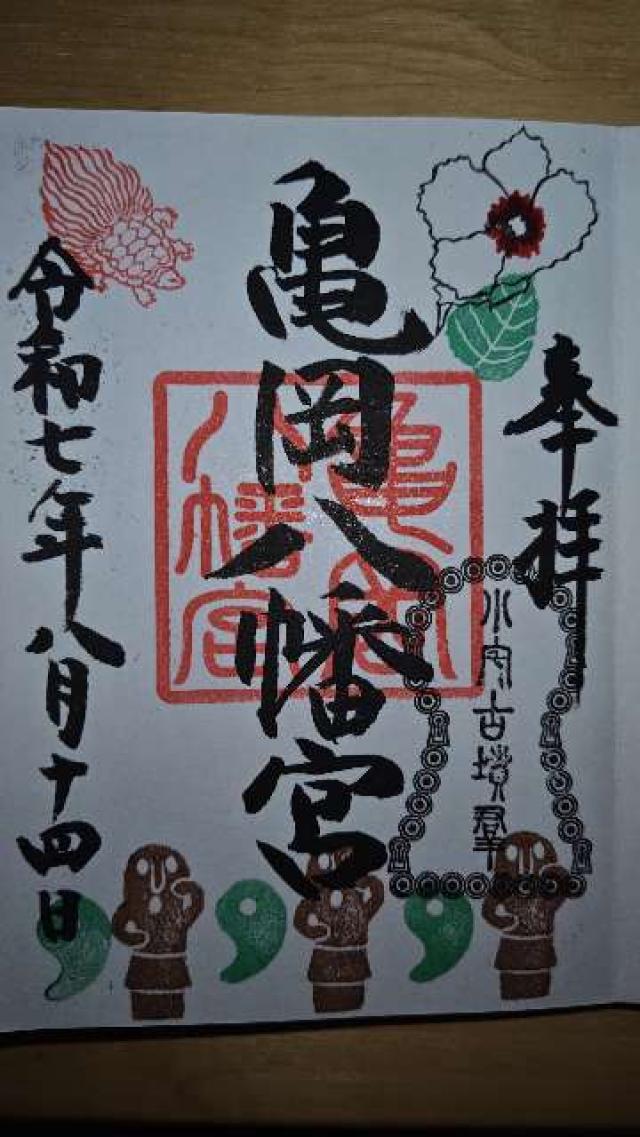 奉拝
小内古墳群
亀岡八幡宮
亀岡
八幡宮
令和七年八月十四日